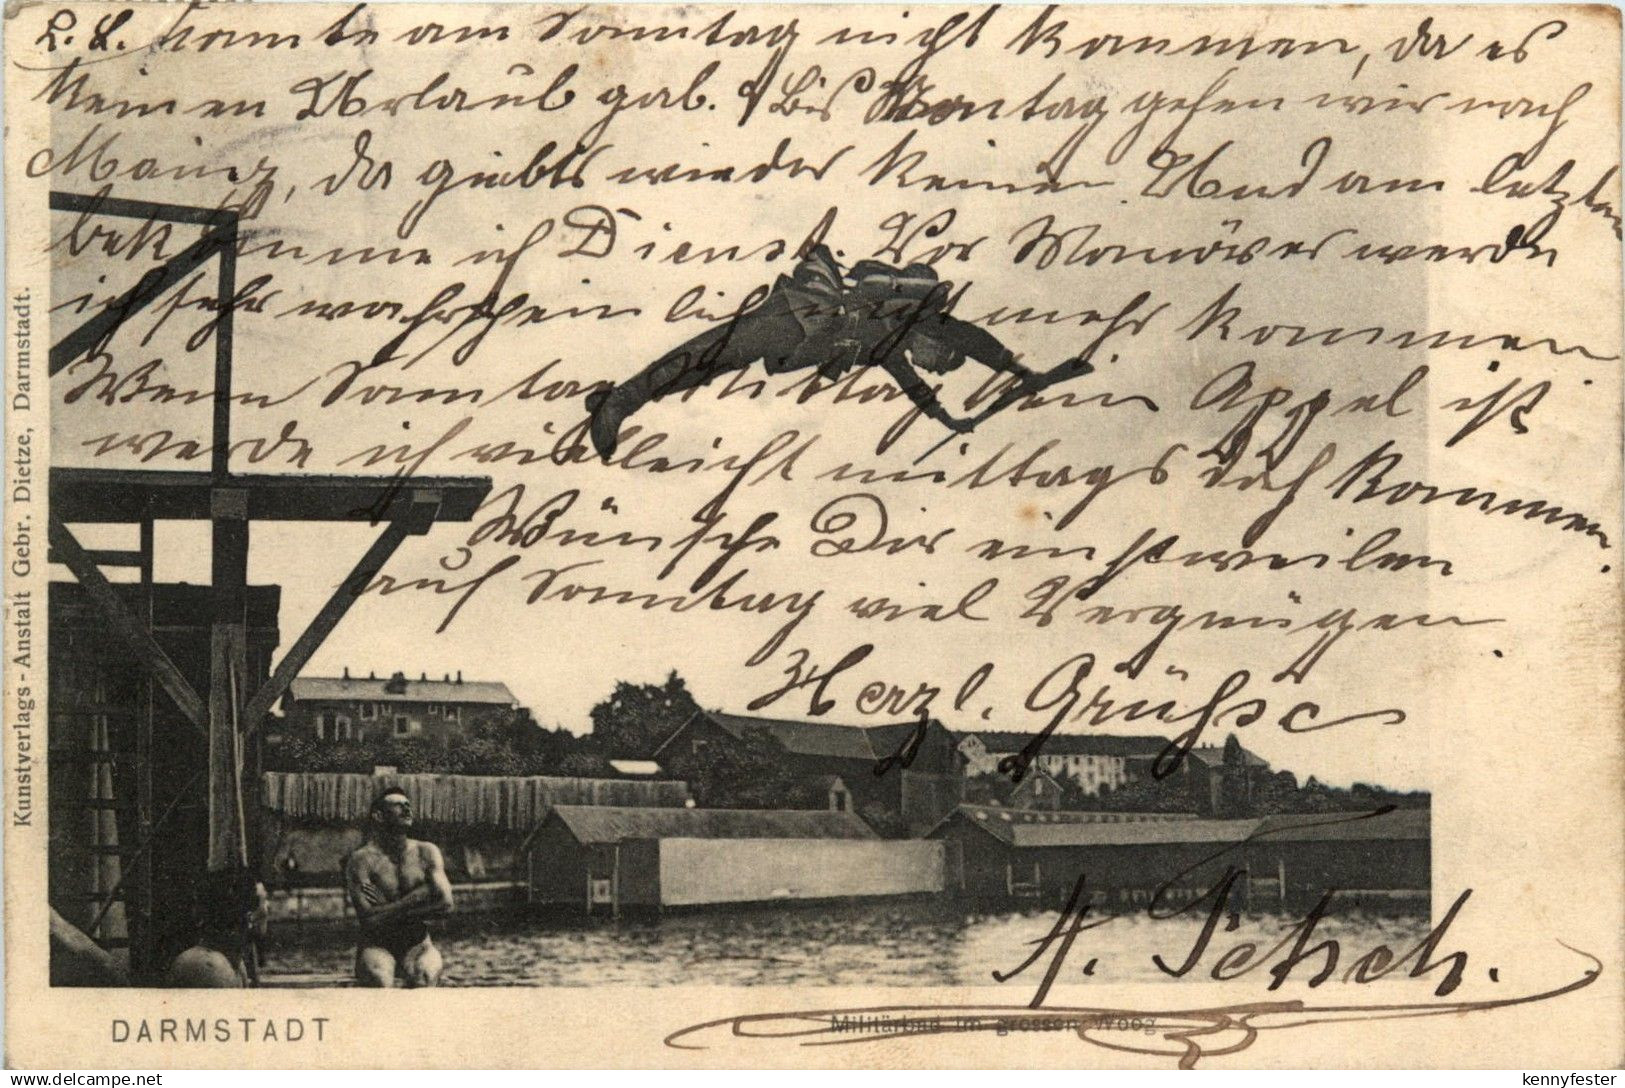 L. L. konnte am Sonntag nicht kommen, da es
keinen Urlaub gab. Bis Montag gehen wir nach
Mainz, da giebts wieder keinen Und am letzten
bekomme ich Dienst. Vor Manöver werde
ich sehr wahrscheinlich nicht mehr kommen
Wenn Sonntag Mittag kein Appel ist
werde ich vielleicht mittags doch kommen.
Wünsche Dir einstweilen
auf Sonntag viel Vergnügen.
Herzl. Grüsse
A.
Kunstverlags-Anstalt Gebr. Dietze, Darmstadt.
DARMSTADT
Militärbad im grossen Woog
kennyfester